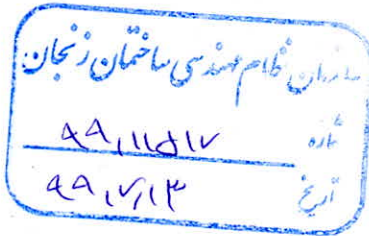 سازمان نظام مهندسی ساختمان زنجان
شماره ۹۹,۱۱۵۱۷
تاریخ ۹۹,۷,۱۳